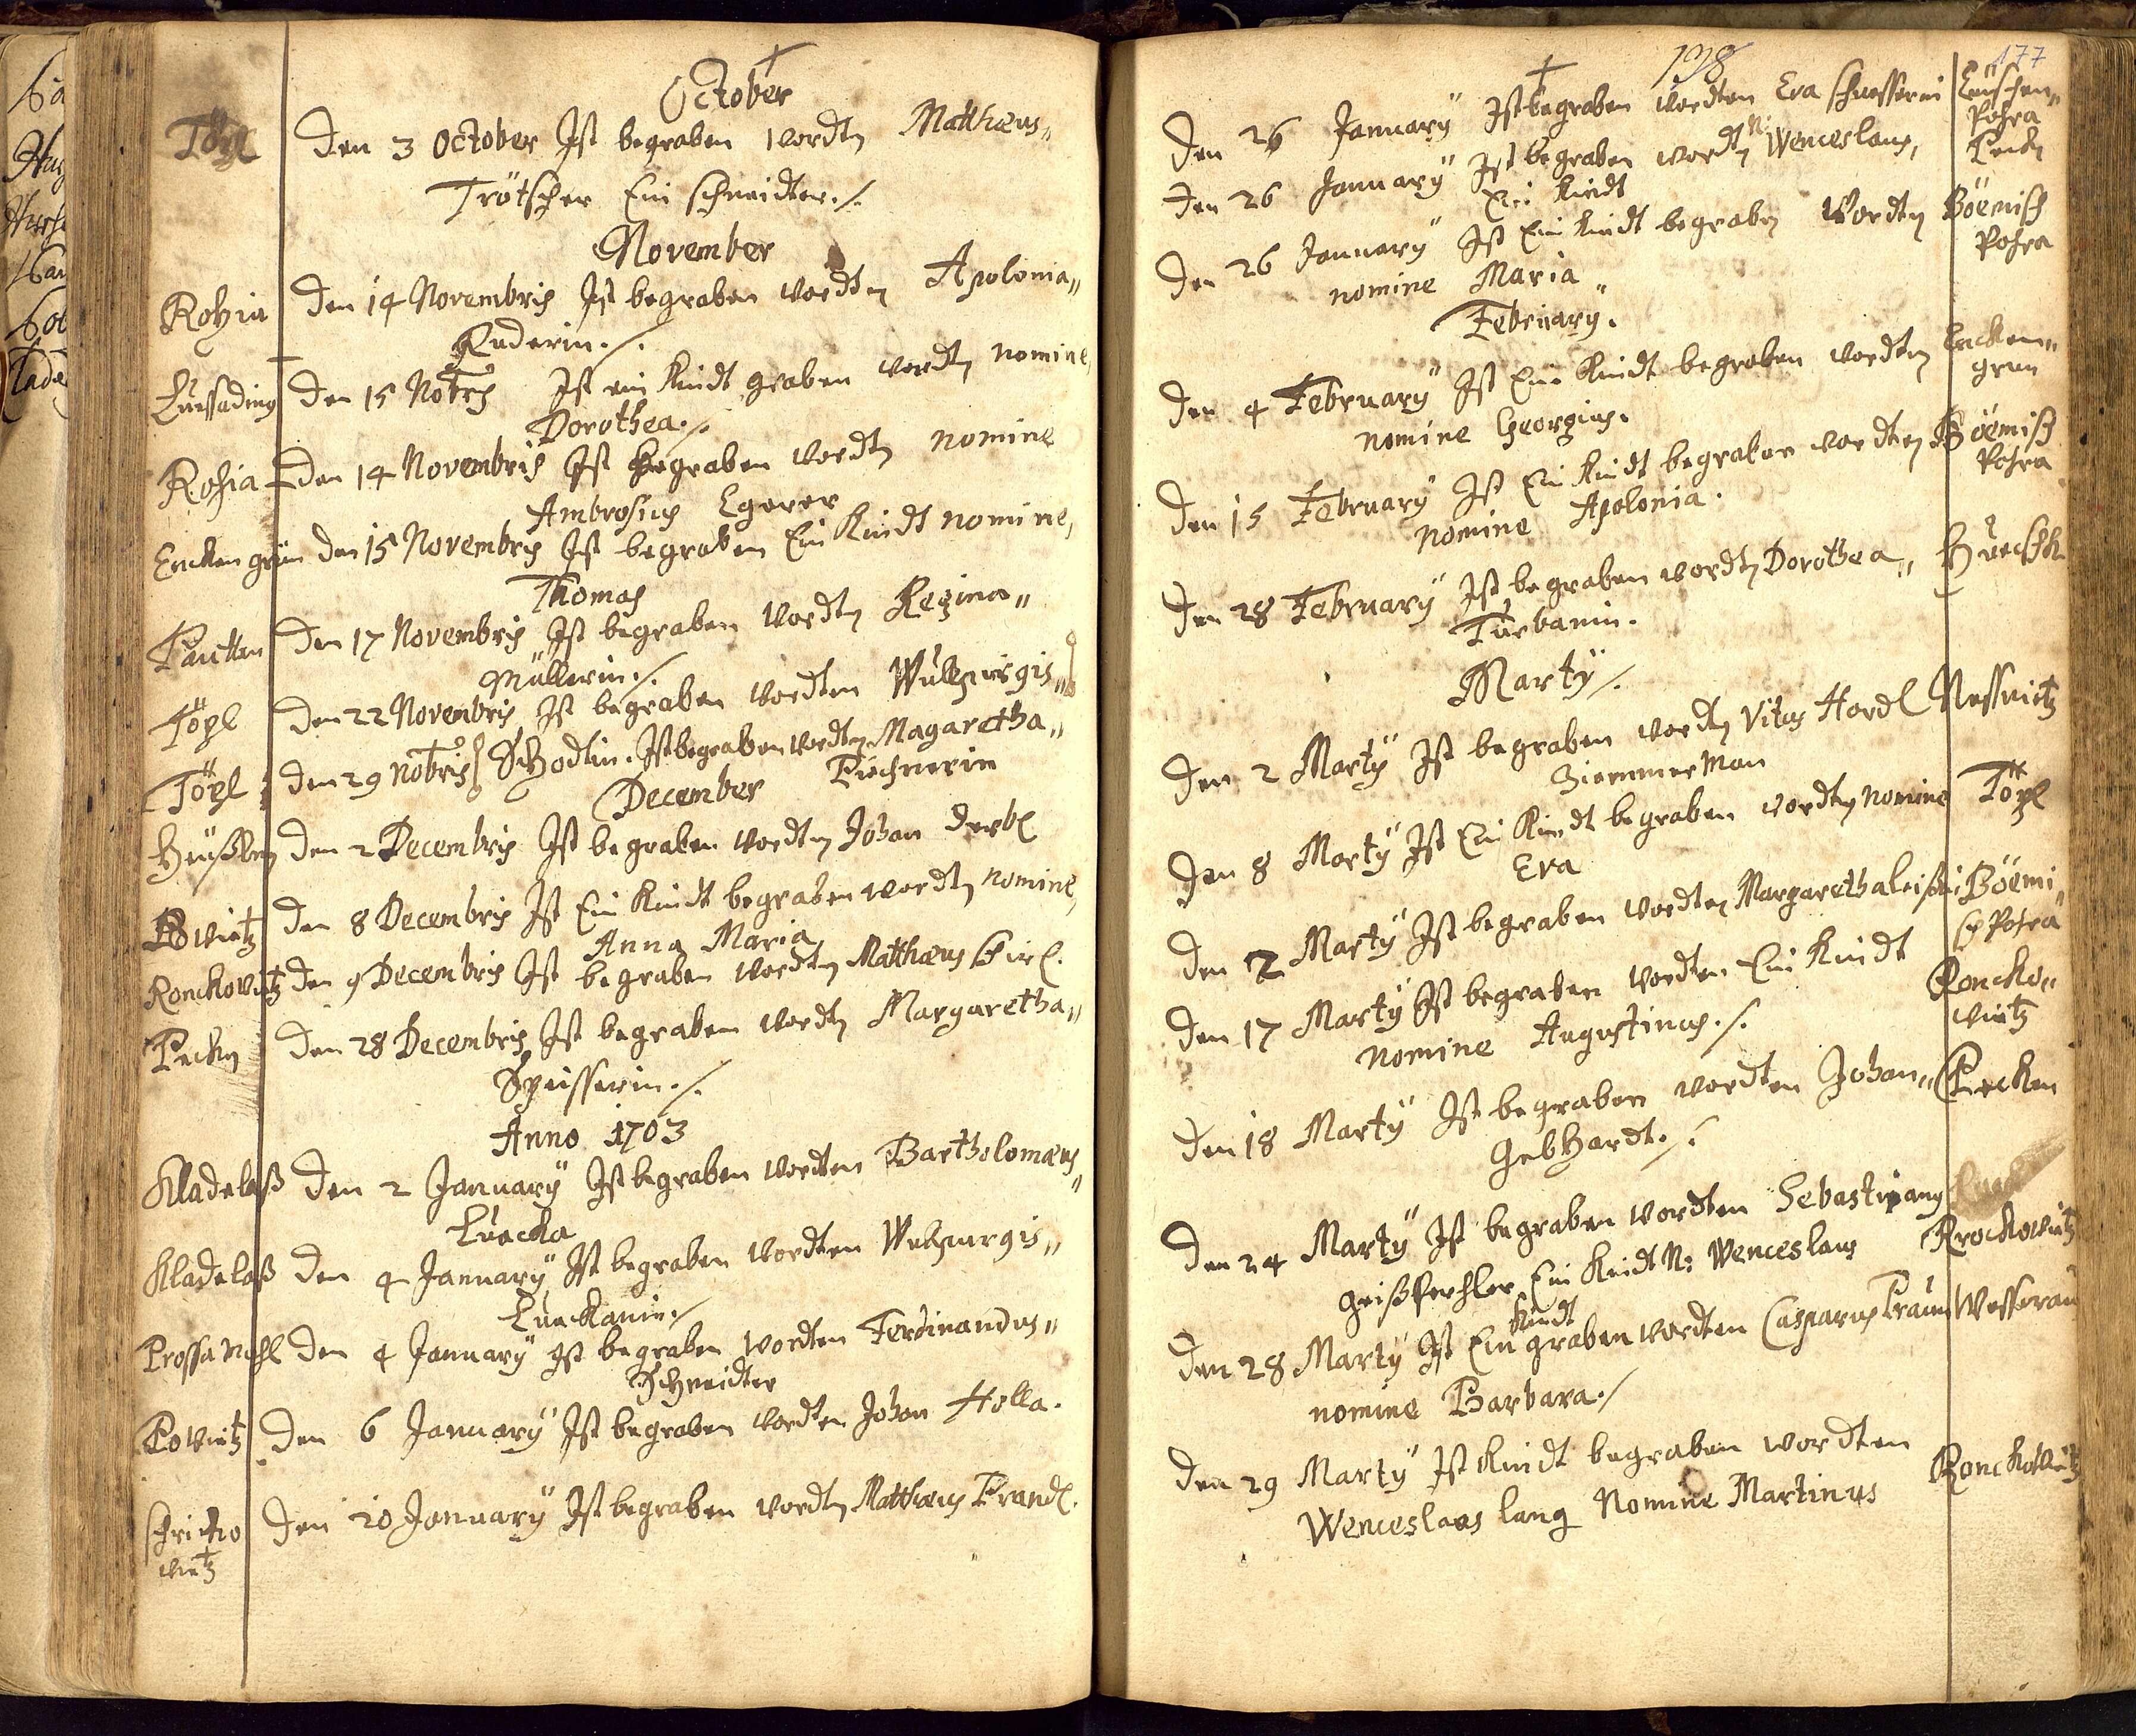 October
Töpl Den 3 October Ist begraben wordten Matthæus„
Trötscher Ein schneidter./.
November
Rohia Den 14 Novembris Ist begraben wordten Apolonia„
Ruderin./.
Den 15 Nobris Ist ein Kindt graben wordten nomine
Dorothea./.
Rohia Den 14 Novembris Ist begraben wordten nomine
Ambrosius Egerer
Encken grün den 15 Novembris Ist begraben Ein Kindt nomine,
Thomas
Den 17 Novembris Ist begraben wordten Regina„
Müllerin./.
Töpl Den 22 Novembris Ist begraben wordten Wulpurgis„
Töpl den 29 Nobris Schodlin. Ist begraben wordten Magaretha„
December
den 2 Decembris Ist begraben wordten Johan
den 8 Decembris Ist Ein Kindt begraben wordten nomine,
Anna Maria
Ronckowitz den 9 Decembris Ist begraben wordten Matthæus
den 28 Decembris Ist begraben wordten Margaretha„
Speisserin./.
Anno 1703
Kladelaß den 2 January Ist begraben wordten Bartholomæus„
Luecka
Kladelaß den 4 January Ist begraben wordten Wulpurgis„
Lueckanin./
den 4 January Ist begraben wordten Ferdinandus„
Schneidter
Powitz den 6 January Ist begraben wordten Johan Holla.
Schricko
witz
den 20 January Ist begraben wordten Matthæus Frandl.
178
177
Den 26 January Ist begraben wordten Eva
Pohra
den 26 January Ist begraben wordten N: Wenceslaus,
Ein Kindt
Den 26 January Ist Ein Kindt begraben wordten Böemisch
Pohra
nomine Maria„
February.
Den 4 February Ist Ein Kindt begraben wordten Encken„
grün
nomine Georgius.
Den 15 February Ist Ein Kindt begraben wordten Böemisch
Pohra
nomine Apolonia.
Den 28 February Ist begraben wordten Dorothea„
Turbanin.
Marty/.
Den 2 Marty Ist begraben wordten Vitus Hordl
Ziemmerman
Den 8 Marty Ist Ein Kindt begraben wordten nomine Töpl
Eva
Den 2 Marty Ist begraben wordten Margaretha Böemi„
sch Pohra
Den 17 Marty Ist begraben wordten Ein Kindt Roncko„
witz
nomine Augustinus./.
Den 18 Marty Ist begraben wordten Johan„ Pecken
Gebhardt./.
Den 24 Marty Ist begraben wordten Sebastian
Ein Kindt N: Wenceslaus
Kindt
Den 28 Marty Ist Ein graben wordten Casparus
nomine Barbara./
Den 29 Marty Ist Kindt begraben wordten Ronckowitz
Wenceslaus lang Nomine Martinus